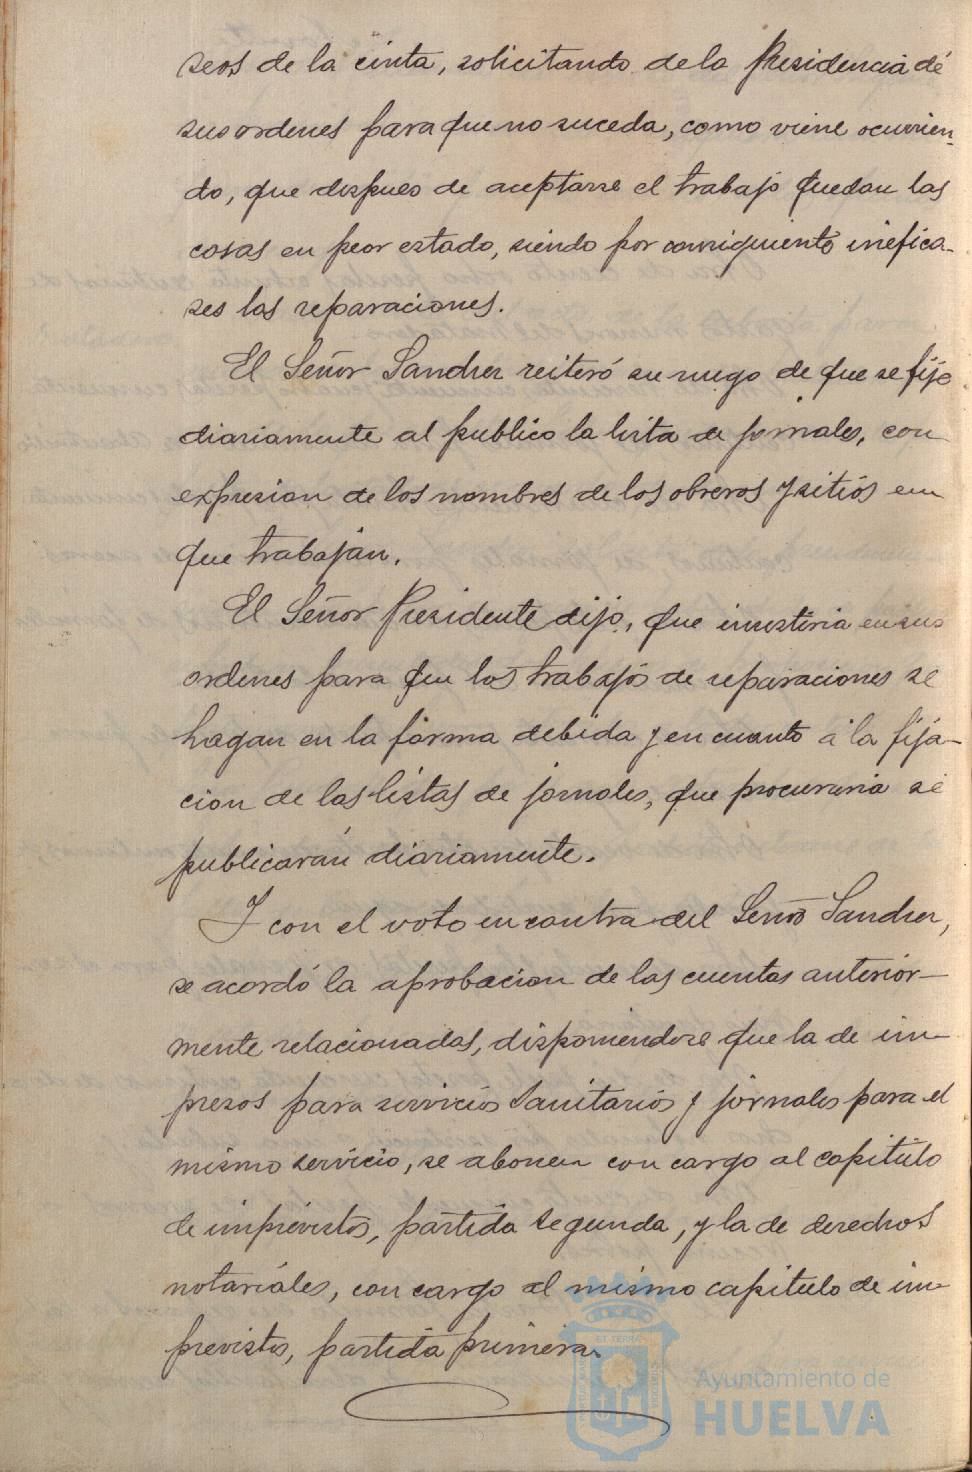 seos de la cinta, solicitando de la Presidencia dé
sus ordenes para que no suceda, como viene ocurrien-
do, que despues de aceptarse el trabajo quedan las
cosas en peor estado, siendo por consiguiente inefica-
ses las reparaciones.
El Señor Sanchez reiteró su ruego de que se fije
diariamente al publico la lista de jornales, con
expresion de los nombres de los obreros y sitios en
que trabajan.
El Señor Presidente dijo, que insistiria en sus
ordenes para que los trabajos de reparaciones se
hagan en la forma debida y en cuanto á la fija-
cion de las listas de jornales, que procuraria se
publicarán diariamente.
Y con el voto en contra del Señor Sanchez,
se acordó la aprobacion de las cuentas anterior-
mente relacionadas, disponiendose que la de im-
presos para servicios Sanitarios y jornales para el
mismo servicio, se abonen con cargo al capitulo
de imprevistos, partida segunda, y la de derechos
notariales, con cargo al mismo capitulo de im-
previstos, partida primera.
Ayuntamiento de
HUELVA